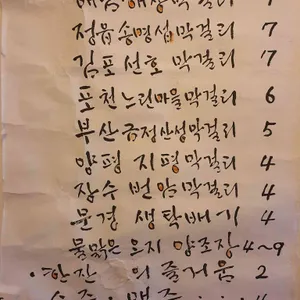 정읍 송명섭 막걸리 7
김포 선호 막걸리 7
포천 느린마을 막걸리 6
부산 금정산성 막걸리 5
양평 지평 막걸리 4
장수 번암 막걸리 4
문경 생탁배기 4
물맑은 오지 양조장 4~9
·한잔의 즐거움 2